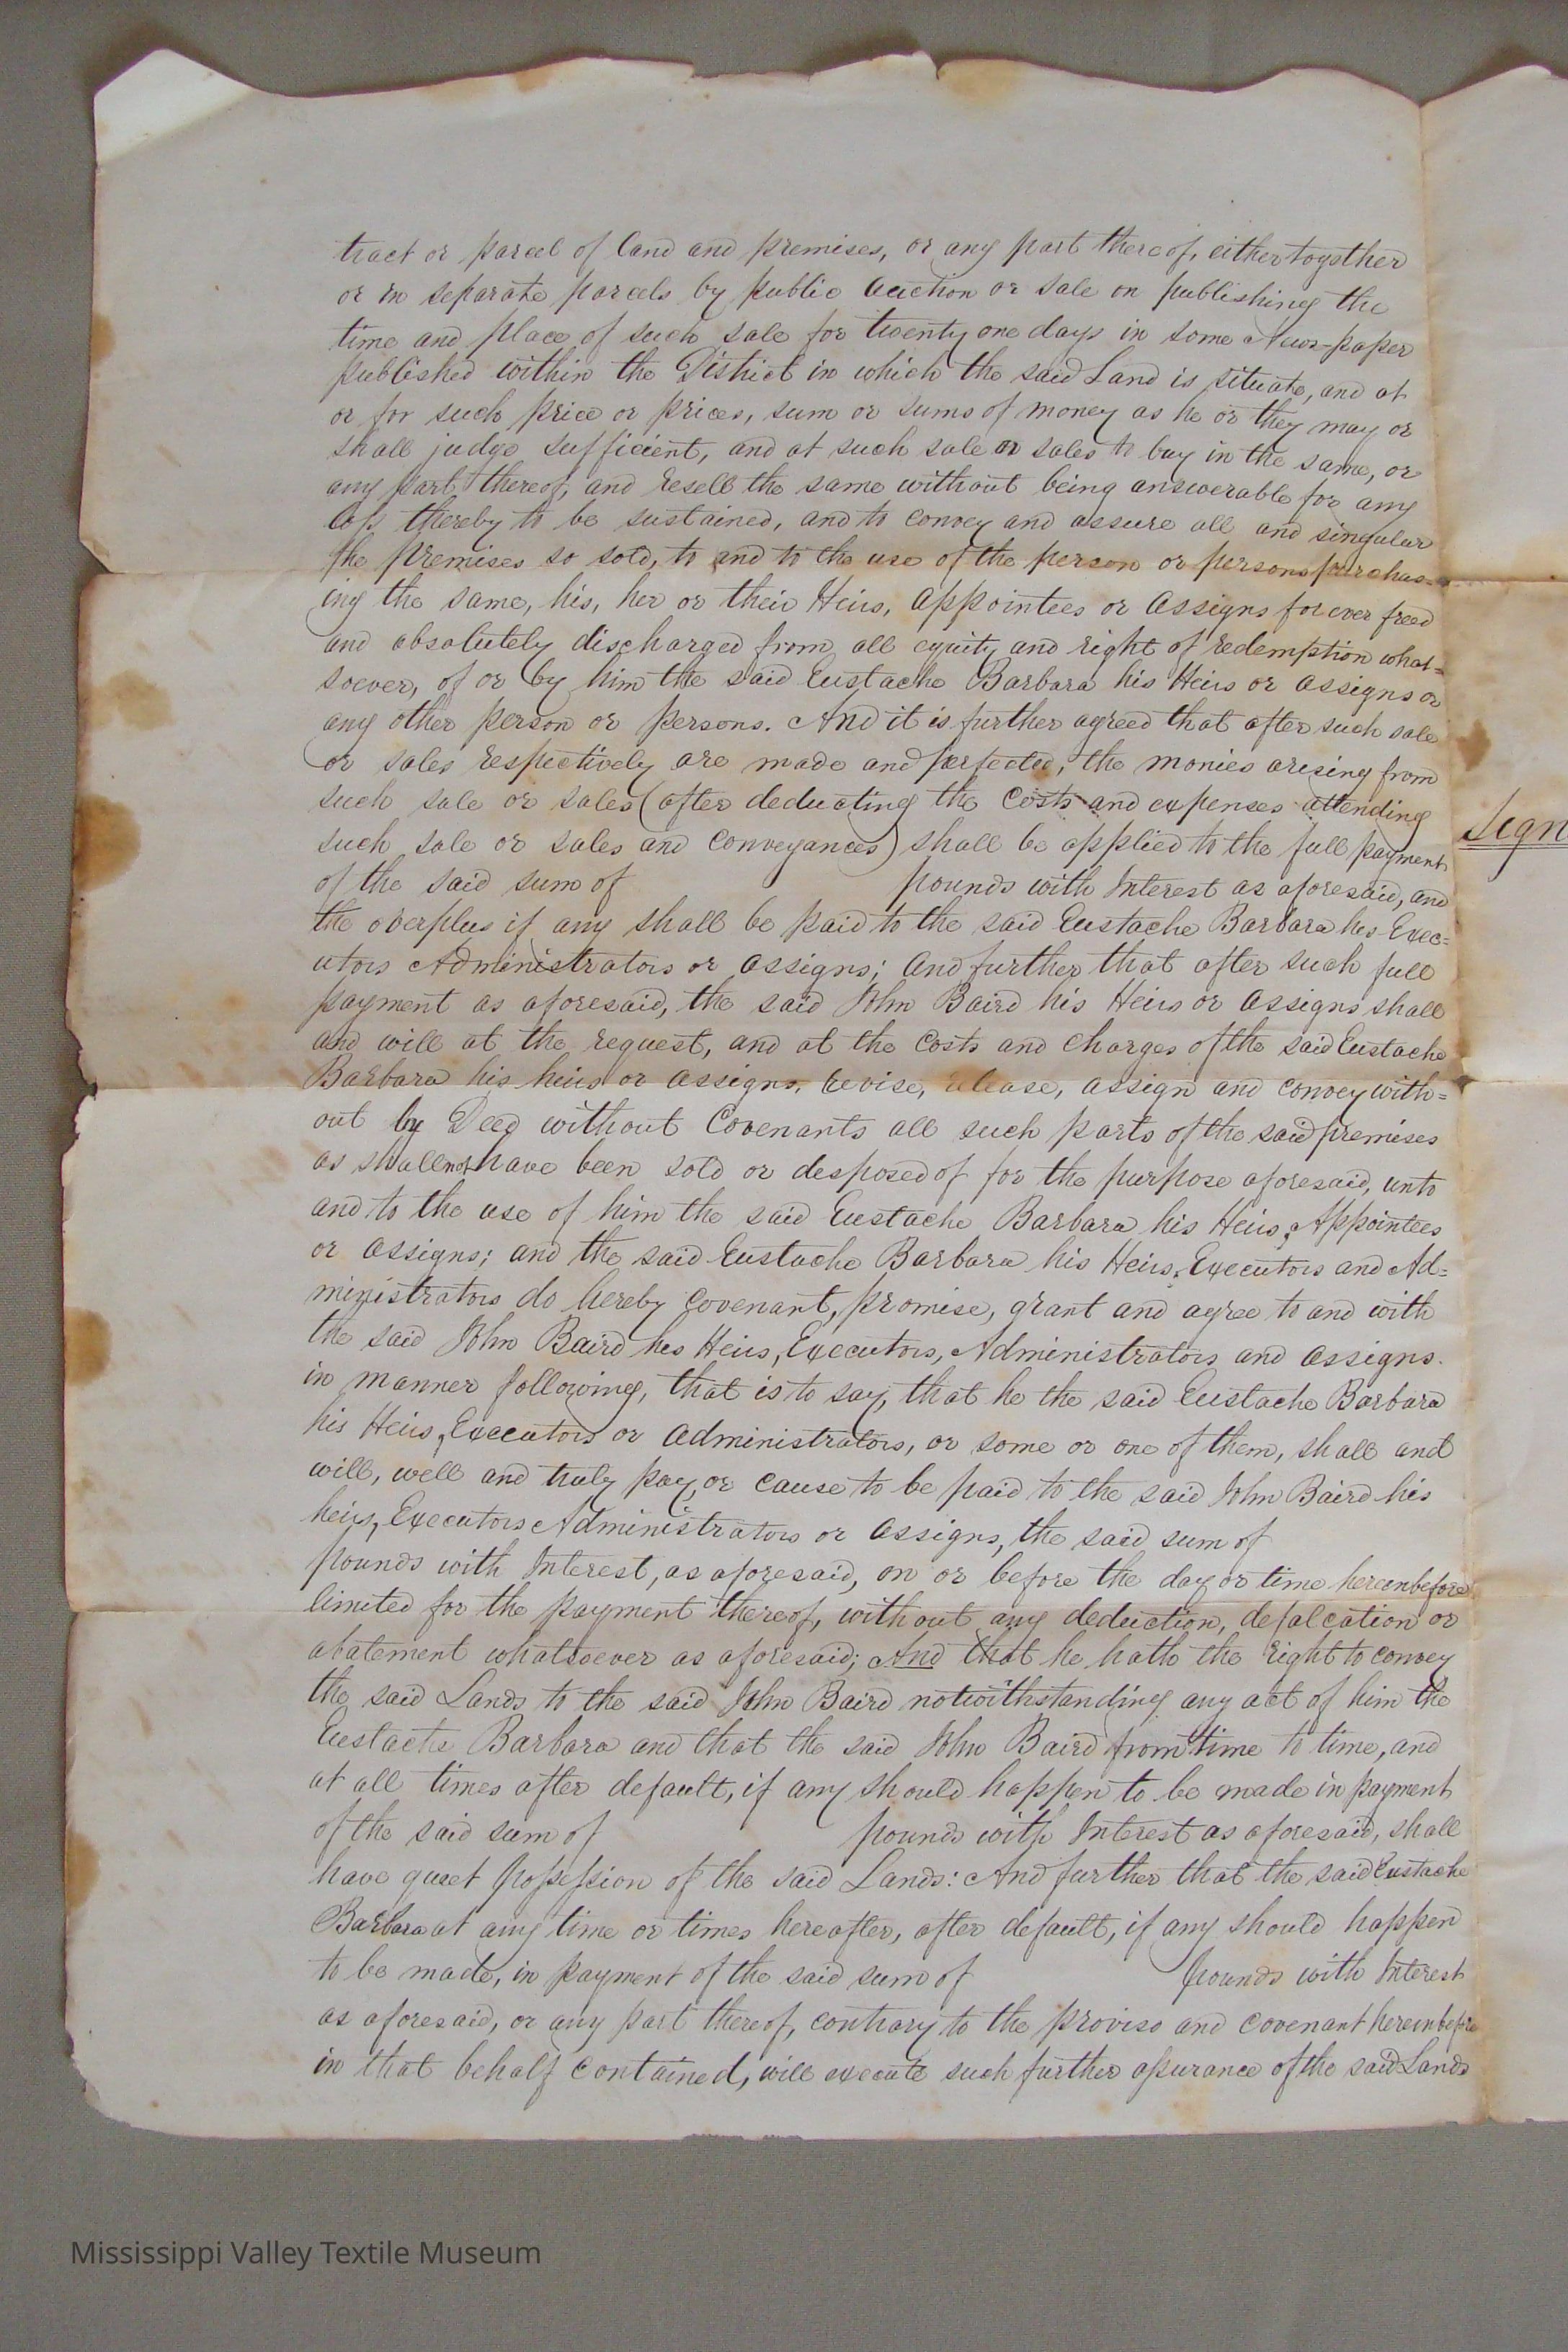 tract or parcel of land and premises, or any part thereof, either together
or in separate parcels by public auction or sale on publishing the
time and place of such sale for twenty one days in some News-paper
published within the District in which the said Land is situate, and at
or for such price or prices, sum or sums of money as he or they may or
shall judge sufficient, and at such sale or sales to buy in the same, or
any part thereof, and resell the same without being answerable for any
loss thereby to be sustained, and to convey and assure all and singular
the premises so sold, to and to the use of the person or persons purchas=
ing the same, his, her or their Heirs, appointees or assigns forever freed
and absolutely discharged from all equity and right of redemption what=
soever, of or by him the said Eustache Barbara his Heirs or assigns or
any other person or persons. And it is further agreed that after such sale
or sales respectively are made and perfected, the monies arising from
such sale or sales (after deducting the costs and expenses attending
such sale or sales and conveyances) shall be applied to the full payment
Sign
of the said sum of pounds with Interest as aforesaid, and
the overplus if any shall be paid to the said Eustache Barbara his Exec=
utors Administrators or assigns; and further that after such full
payment as aforesaid, the said John Baird his Heirs or assigns shall
and will at the request, and at the costs and charges of the said Eustache
Barbara his heirs or assigns, devise, release, assign and convey with=
out by Deed without Covenants all such parts of the said premises
as shall not have been sold or desposed of for the purpose aforesaid, unto
and to the use of him the said Eustache Barbara his Heirs, Appointees
or assigns; and the said Eustache Barbara his Heirs, Executors and Ad=
ministrators do hereby covenant, promise, grant and agree to and with
the said John Baird his Heirs, Executors, Administrators and assigns.
in manner following, that is to say, that he the said Eustache Barbara
his Heirs, Executors or administrators, or some or one of them, shall and
will, well and truly pay, or cause to be paid to the said John Baird his
heirs, Executors Administrators or assigns, the said sum of
pounds with Interest, as aforesaid, on or before the day or time hereinbefore
limited for the payment thereof, without any deduction, defalcation or
abatement whatsoever as aforesaid; And that he hath the right to convey
the said Lands to the said John Baird notwithstanding any act of him the
Eustache Barbara and that the said John Baird from time to time, and
at all times after default, if any should happen to be made in payment
of the said sum of pounds with Interest as aforesaid, shall
have quiet possession of the said Lands: And further that the said Eustache
Barbara at any time or times hereafter, after default, if any should happen
to be made, in payment of the said sum of pounds with Interest
as aforesaid, or any part thereof, contrary to the proviso and covenant hereinbefore
in that behalf contained, will execute such further assurance of the said Lands
Mississippi Valley Textile Museum